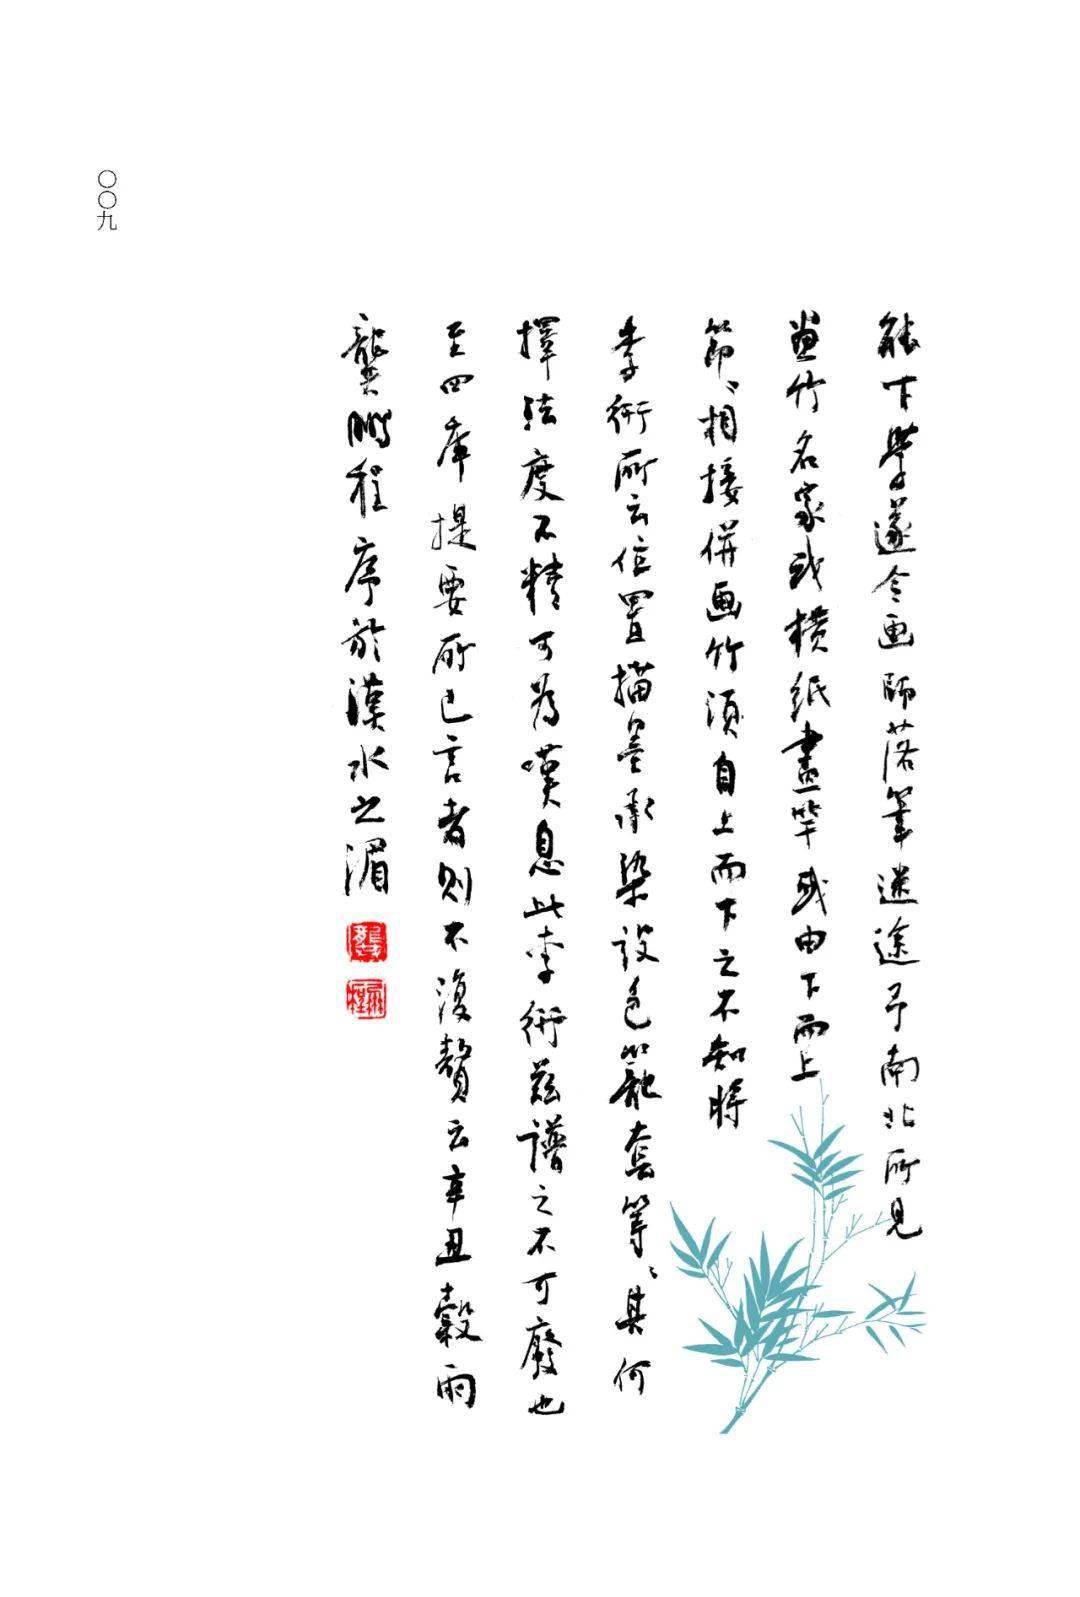 能下學遂令画師落筆迷途予南北所見
畫竹名家或横紙畫竿或由下而上
節〻相接併画竹須自上而下之不知將
李衎所云位置描墨承染設色籠套等〻其何
擇法度不精可為嘆息此李衎茲譜之不可廢也
至四庫提要所已言者則不復贅云辛丑穀雨
龔鵬程序於漢水之湄
〇〇九